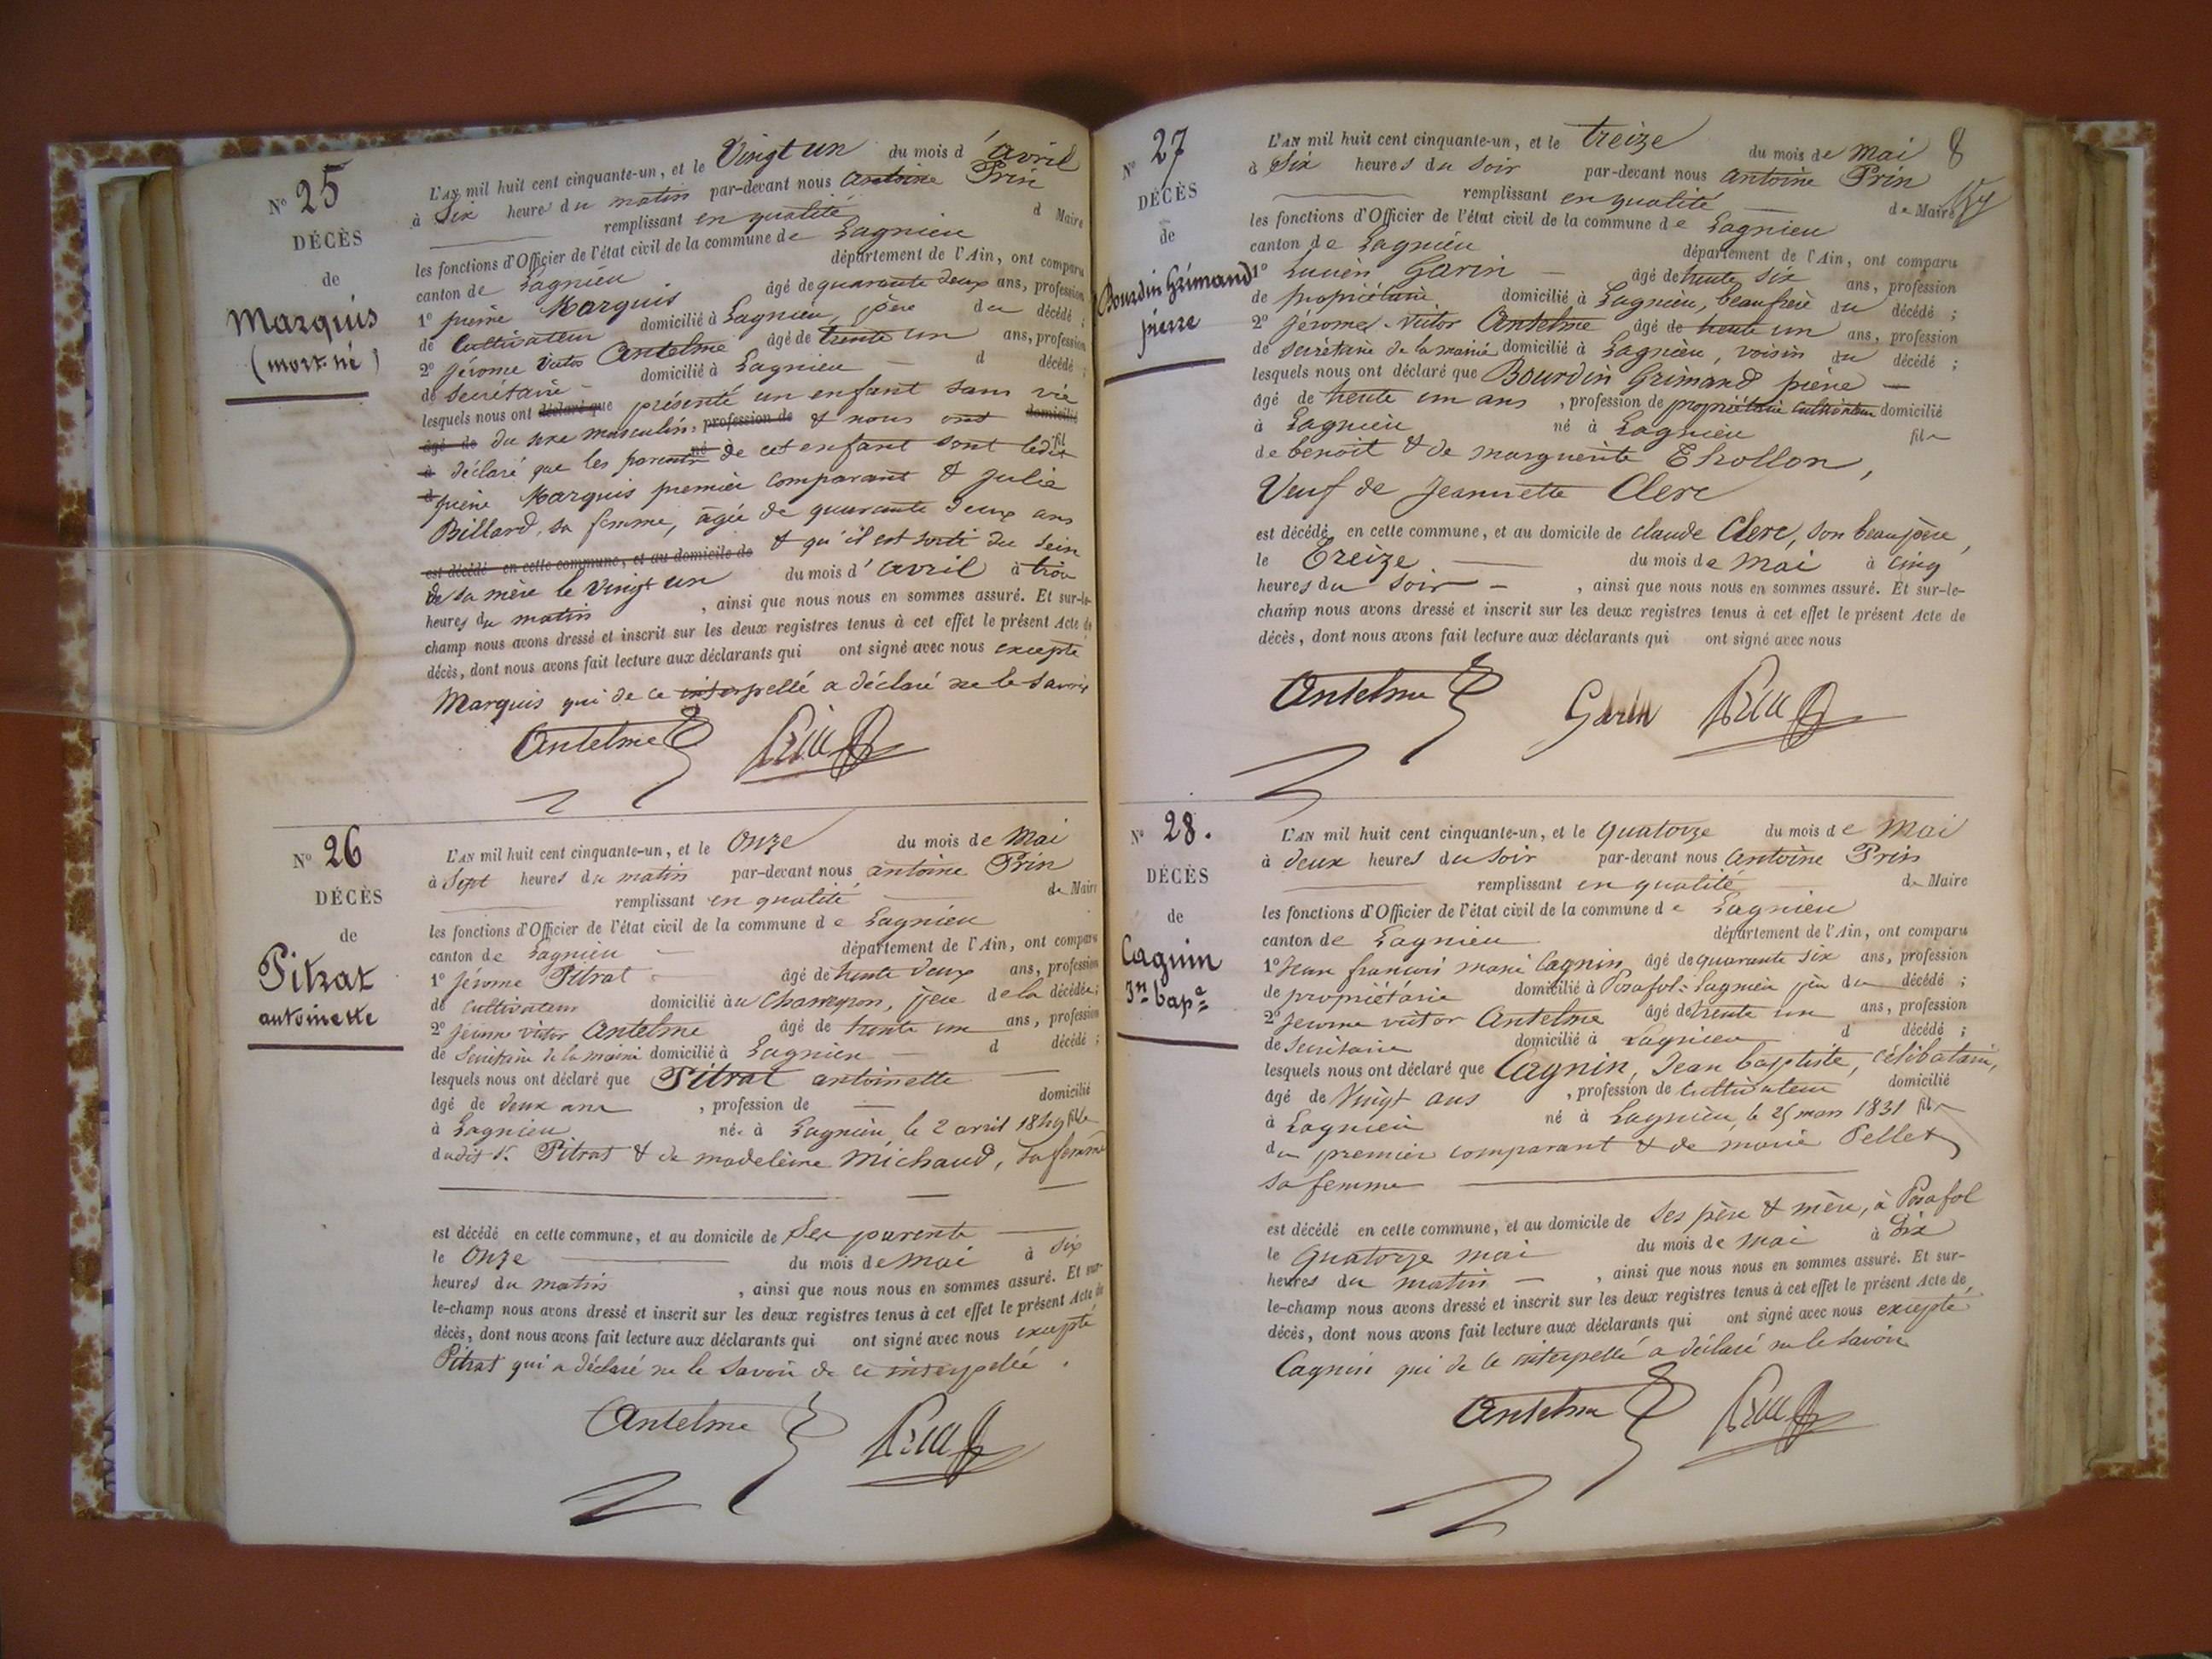 N° 25
DÉCÈS
de
Marquis
(mort-né)
L'AN mil huit cent cinquante-un, et le Vingt un du mois d'avril
à Six heures du matin par-devant nous Antoine Prin
remplissant en qualité d Maire
les fonctions d'Officier de l'état civil de la commune de Lagnieu
canton de Lagnieu département de l'Ain, ont comparu
1° pierre Marquis âgé de quarante deux ans, profession
de Cultivateur domicilié à Lagnieu, père du décédé ;
2° jérome Victor Antelme âgé de trente un ans, profession
de Secrétaire domicilié à Lagnieu d décédé ;
lesquels nous ont déclaré que présenté un enfant sans vie
âgé de du sexe masculin, profession de & nous ont domicilié
à déclaré que les parents né de cet enfant sont ledit fil
d pierre Marquis premier comparant & Julie
Billard, sa femme, âgée de quarante deux ans
est décédé en cette commune, et au domicile de & qu'il est sorti du sein
de sa mère le Vingt un du mois d'avril à trois
heures du matin, ainsi que nous nous en sommes assuré. Et sur-le-
champ nous avons dressé et inscrit sur les deux registres tenus à cet effet le présent Acte de
décès, dont nous avons fait lecture aux déclarants qui ont signé avec nous excepté
Marquis qui de ce interpellé a déclaré ne le savoir
Antelme Prin
N° 26
DÉCÈS
de
Pitrat
antoinette
L'AN mil huit cent cinquante-un, et le Onze du mois de Mai
à Sept heures du matin par-devant nous antoine Prin
remplissant en qualité de Maire
les fonctions d'Officier de l'état civil de la commune de Lagnieu
canton de Lagnieu département de l'Ain, ont comparu
1° jérome Pitrat âgé de trente deux ans, profession
de Cultivateur domicilié au Charveyron, père de la décédée ;
2° jérome victor Antelme âgé de trente un ans, profession
de Secrétaire de la mairie domicilié à Lagnieu d décédé ;
lesquels nous ont déclaré que Pitrat antoinette
âgé de deux ans, profession de domicilié
à Lagnieu née à Lagnieu, le 2 avril 1849 fille
dudit Sr Pitrat & de madeleine Michaud, sa femme
est décédé en cette commune, et au domicile de Ses parents
le Onze du mois de Mai à Six
heures du matin, ainsi que nous nous en sommes assuré. Et sur-
le-champ nous avons dressé et inscrit sur les deux registres tenus à cet effet le présent Acte de
décès, dont nous avons fait lecture aux déclarants qui ont signé avec nous excepté
Pitrat qui a déclaré ne le savoir de ce interpellé.
Antelme Prin
8
N° 27
DÉCÈS
de
Bourdin Grimaud
pierre
L'AN mil huit cent cinquante-un, et le treize du mois de Mai
à Six heures du soir par-devant nous Antoine Prin
remplissant en qualité de Maire
les fonctions d'Officier de l'état civil de la commune de Lagnieu
canton de Lagnieu département de l'Ain, ont comparu
1° Lucien Garin âgé de trente six ans, profession
de propriétaire domicilié à Lagnieu, beau frère du décédé ;
2° jérome Victor Antelme âgé de trente un ans, profession
de secrétaire de la mairie domicilié à Lagnieu, voisin du décédé ;
lesquels nous ont déclaré que Bourdin Grimaud pierre
âgé de trente un ans, profession de propriétaire Cultivateur domicilié
à Lagnieu né à Lagnieu fils
de benoit & de marguerite Thollon,
Veuf de Jeannette Clerc
est décédé en cette commune, et au domicile de claude Clerc, son beau père,
le Treize du mois de Mai à Cinq
heures du soir, ainsi que nous nous en sommes assuré. Et sur-le-
champ nous avons dressé et inscrit sur les deux registres tenus à cet effet le présent Acte de
décès, dont nous avons fait lecture aux déclarants qui ont signé avec nous
Antelme Garin Prin
N° 28.
DÉCÈS
de
Cagnin
Jn bape
L'AN mil huit cent cinquante-un, et le Quatorze du mois de Mai
à deux heures du soir par-devant nous Antoine Prin
remplissant en qualité de Maire
les fonctions d'Officier de l'état civil de la commune de Lagnieu
canton de Lagnieu département de l'Ain, ont comparu
1° Jean françois marie Cagnin âgé de quarante six ans, profession
de propriétaire domicilié à Posafol-Lagnieu père du décédé ;
2° Jerome victor Antelme âgé de trente un ans, profession
de Secrétaire domicilié à Lagnieu d décédé ;
lesquels nous ont déclaré que Cagnin, Jean baptiste, célibataire,
âgé de Vingt ans, profession de Cultivateur domicilié
à Lagnieu né à Lagnieu, le 25 mars 1831 fils
du premier comparant & de marie Pellet
sa femme
est décédé en cette commune, et au domicile de Ses père & mère, à Posafol
le Quatorze mai du mois de Mai à Six
heures du matin, ainsi que nous nous en sommes assuré. Et sur-
le-champ nous avons dressé et inscrit sur les deux registres tenus à cet effet le présent Acte de
décès, dont nous avons fait lecture aux déclarants qui ont signé avec nous excepté
Cagnin qui de ce interpellé a déclaré ne le savoir
Antelme Prin